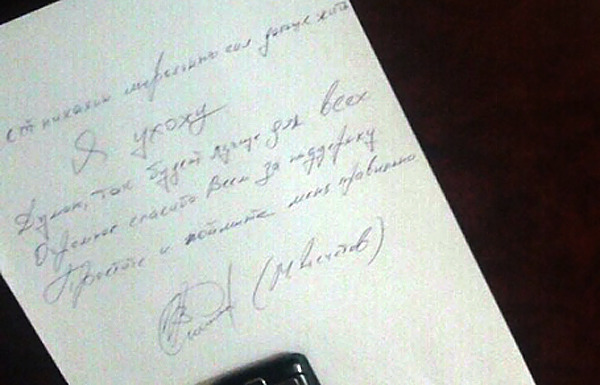 ст никакой моральных сил дальше жить
Я ухожу
Думаю, так будет лучше для всех
Огромное спасибо Всем за поддержку
Простите и поймите меня правильно